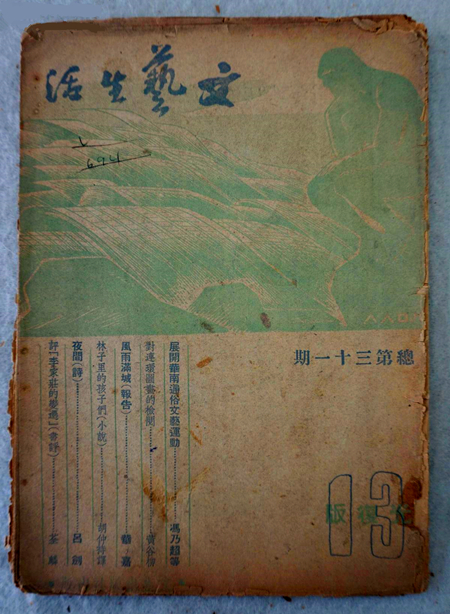 文藝生活
總第三十一期
展開華南通俗文藝運動………馮乃超等
對連環圖畫的檢閱………黃谷柳
風雨滿城(報告)………華嘉
林子里的孩子們(小說)………胡仲持譯
夜間(詩)………呂劍
評「李家莊的變遷」(書評)………荃麟
13